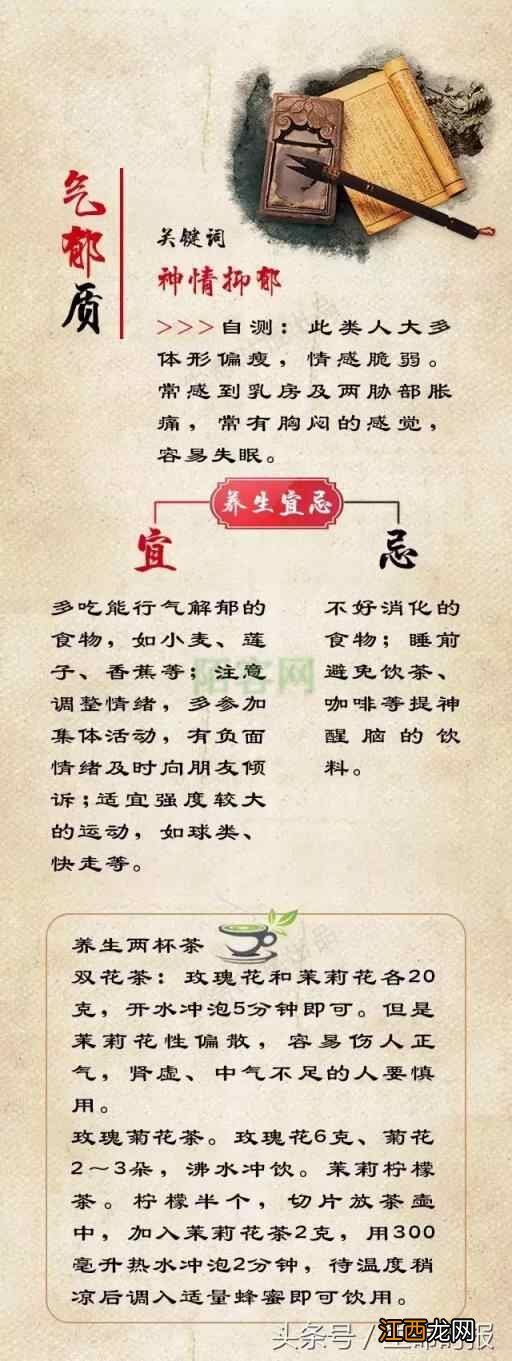 气郁质
关键词
神情抑郁
>>>自测：此类人大多
体形偏瘦，情感脆弱。
常感到乳房及两胁部胀
痛，常有胸闷的感觉，
容易失眠。
养生宜忌
宜
多吃能行气解郁的
食物，如小麦、莲
子、香蕉等；注意
调整情绪，多参加
集体活动，有负面
情绪及时向朋友倾
诉；适宜强度较大
的运动，如球类、
快走等。
忌
不好消化的
食物；睡前
避免饮茶、
咖啡等提神
醒脑的饮
料。
陌客网
养生两杯茶
双花茶：玫瑰花和茉莉花各20
克，开水冲泡5分钟即可。但是
茉莉花性偏散，容易伤人正
气，肾虚、中气不足的人要慎
用。
玫瑰菊花茶。玫瑰花6克、菊花
2～3朵，沸水冲饮。茉莉柠檬
茶。柠檬半个，切片放茶壶
中，加入茉莉花茶2克，用300
毫升热水冲泡2分钟，待温度稍
凉后调入适量蜂蜜即可饮用。
头条号/生命时报
江西龙网